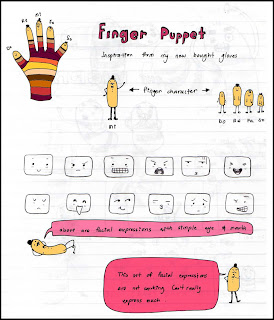 Finger Puppet
Inspiration from my new bought gloves
Finger character
mi
Do Re Fa So
above are facial expressions with simple eye & mouth
This set of facial expressions
are not working. Can't really
express much